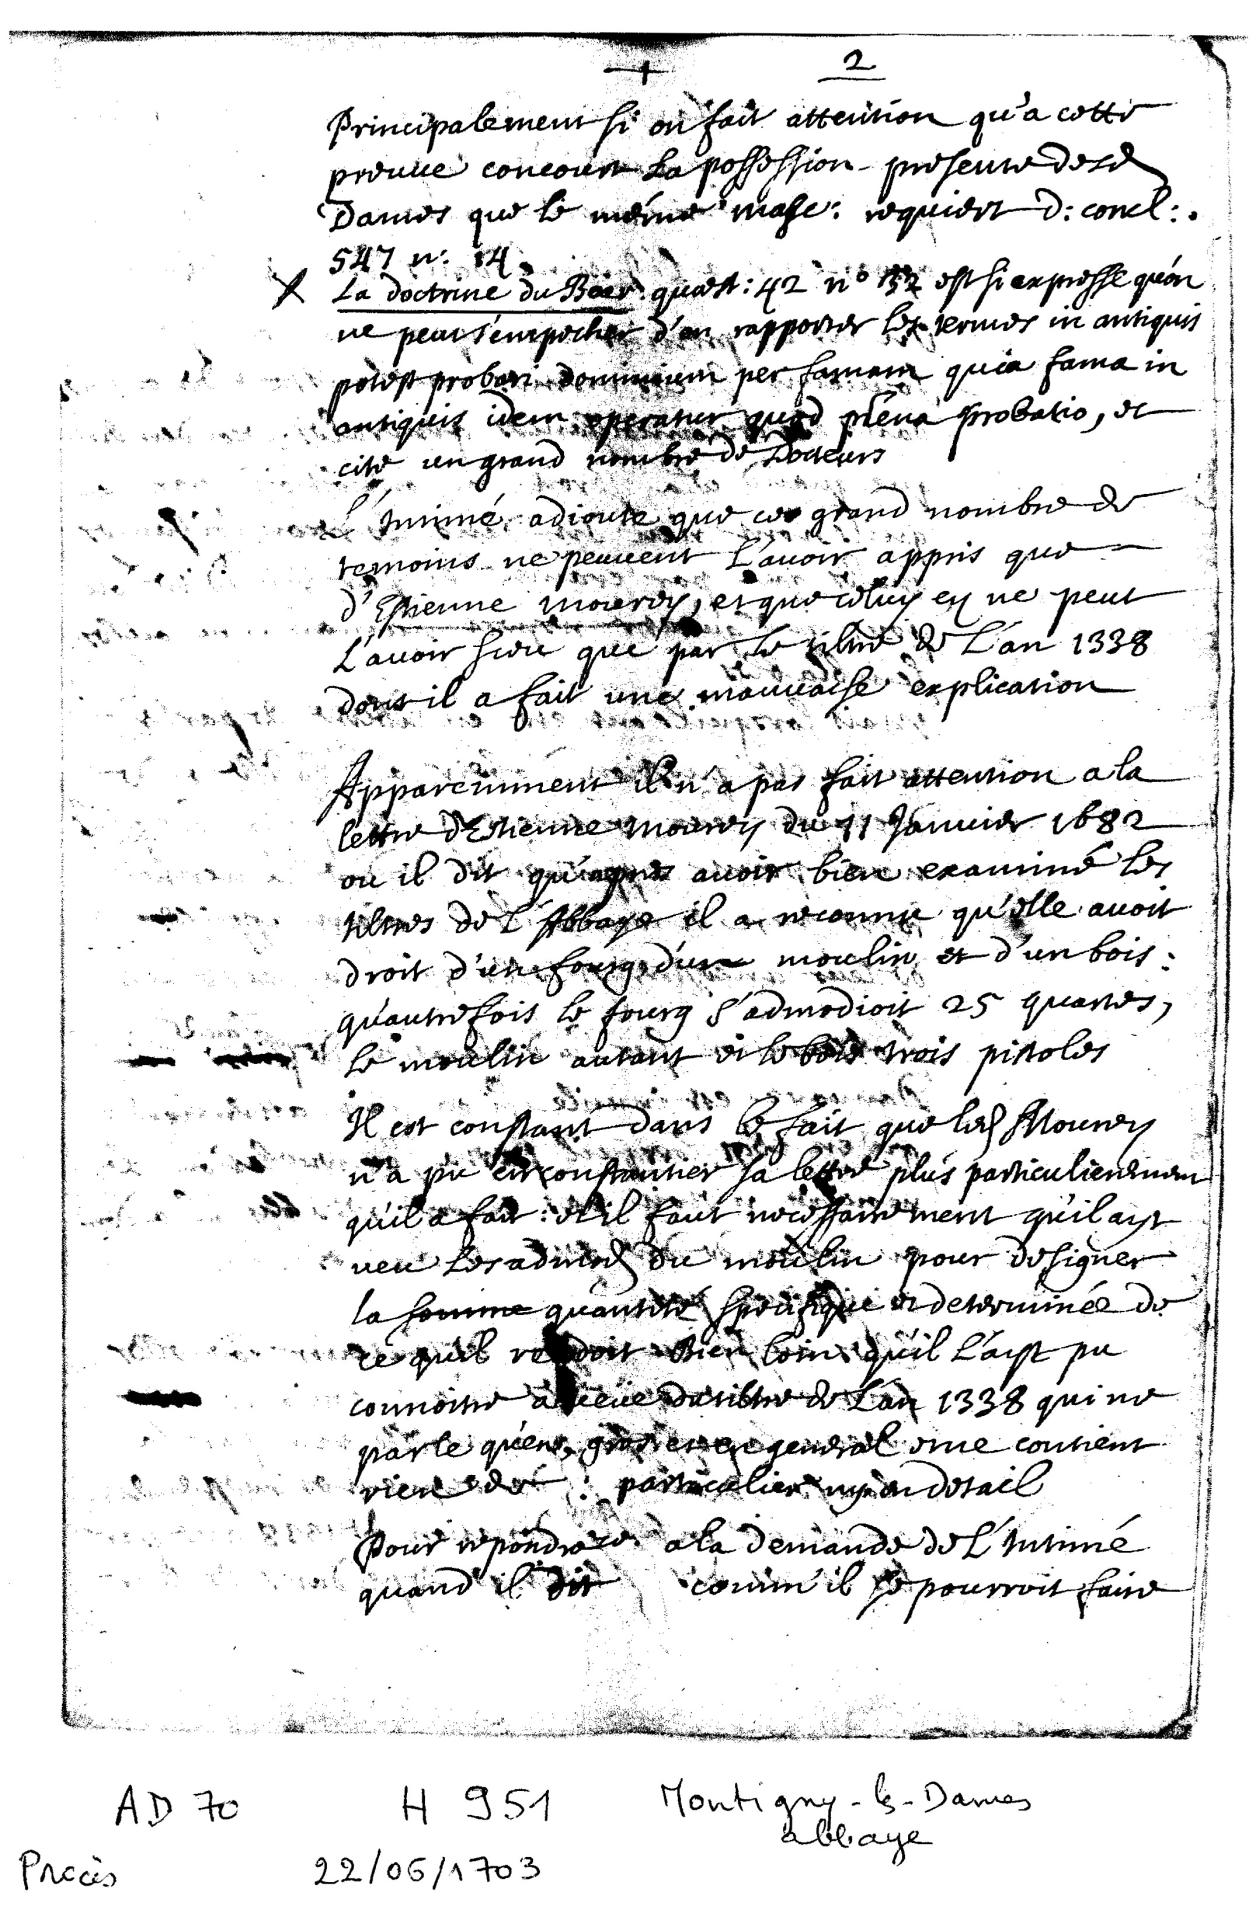 2
Principalement si on fait attention qu'a cette
preuue concourt La possession presente desd
Dames que le même masc: requiert d: concl:.
547 n: 14
La doctrine du Boër quæst: 42 n° 32 est si expresse qu'on
ne peut s'empecher d'en rapporter les termes in antiquis
potest probari dominium per famam quia fama in
antiquis idem operatur quod plena probatio, et
cite un grand nombre de Docteurs
L'Intimé adioute que ce grand nombre de
temoins ne peuuent L'auoir appris que
d'Estienne mourey, et que celuy cy ne peut
L'auoir sceu que par le tiltre de L'an 1338
dont il a fait une mauuaise explication
Apparemment il n'a pas fait attention a la
lettre d'Estienne mourey du 11 Januier 1682
ou il dit qu'apres auoir bien examiné les
tiltres de L'Abbaye il a reconnu qu'elle auoit
droit d'un fourg, d'un moulin et d'un bois:
qu'autrefois le fourg s'admodioit 25 quartes,
le moulin autant et le bois trois pistoles
Il est constant dans le fait que led Mourey
n'a pu circonstantier sa lettre plus particulierement
qu'il a fait: et il faut necessairement qu'il ayt
veu les admod du moulin pour designer
la somme quantité specifique et determinée de
ce qu'il rendoit Bien loin qu'il L'ayt pu
connoitre a veue du tiltre de L'an 1338 qui ne
parle qu'en gros et en general et ne contient
rien de particulier ny en detail
Pour repondre a la demande de L'Intimé
quand il dit comm'il se pourroit faire
AD 70 H 951 Montigny-ls-Dames
abbaye
Procès 22/06/1703